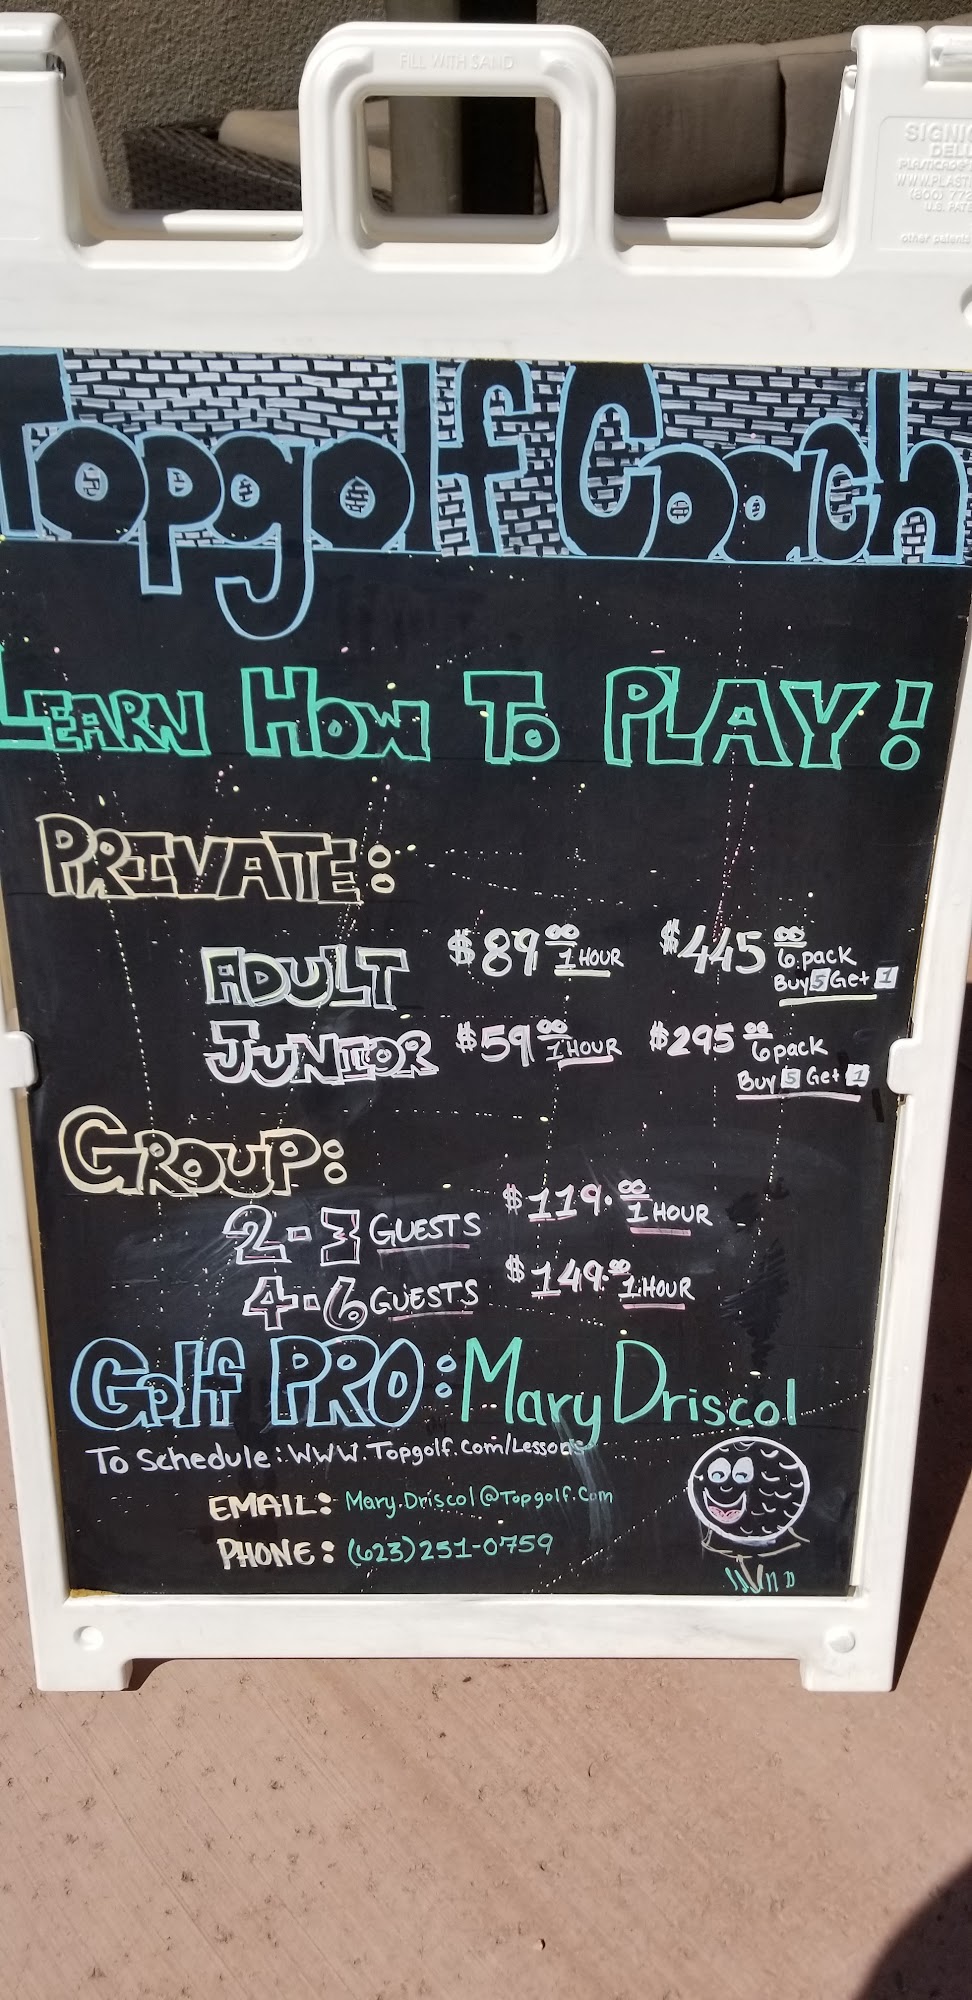 FILL WITH SAND
(800) 772
U.S. PATE
other patents
Topgolf Coach
LEARN HOW TO PLAY!
PRIVATE:
ADULT $89.00 1 HOUR $445.00 6 pack
Buy 5 Get 1
JUNIOR $59.00 1 HOUR $295.00 6 pack
Buy 5 Get 1
GROUP:
2-3 GUESTS $119.00 1 HOUR
4-6 GUESTS $149.00 1 HOUR
Golf PRO: Mary Driscol
To Schedule: WWW.Topgolf.com/Lessons
EMAIL: Mary.Driscol@Topgolf.Com
PHONE: (623)251-0759